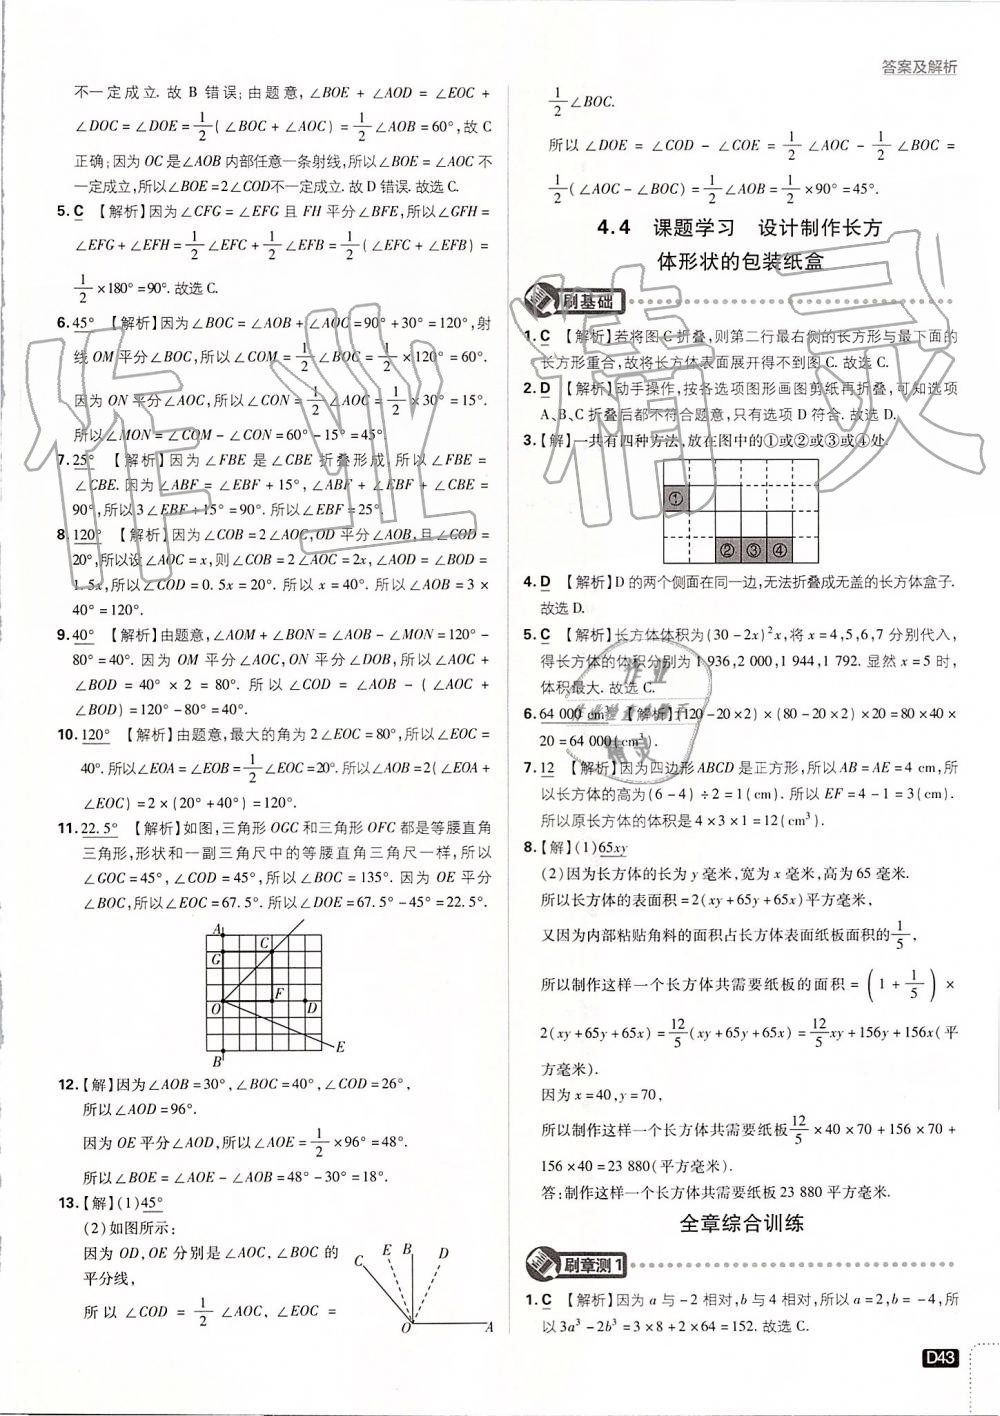 答案及解析
不一定成立. 故 B 错误;由题意,∠BOE + ∠AOD = ∠EOC +
∠DOC = ∠DOE = 1/2(∠BOC + ∠AOC) = 1/2∠AOB = 60°,故 C
正确;因为 OC 是∠AOB 内部任意一条射线,所以∠BOE = ∠AOC 不
一定成立,所以∠BOE = 2∠COD不一定成立. 故 D 错误. 故选 C.
5. C 【解析】因为∠CFG = ∠EFG 且 FH 平分∠BFE,所以∠GFH =
∠EFG + ∠EFH = 1/2∠EFC + 1/2∠EFB = 1/2(∠EFC + ∠EFB) =
1/2 × 180° = 90°. 故选 C.
6. 45° 【解析】因为∠BOC = ∠AOB + ∠AOC = 90° + 30° = 120°,射
线 OM 平分∠BOC,所以∠COM = 1/2∠BOC = 1/2 × 120° = 60°.
因为 ON 平分∠AOC,所以∠CON = 1/2∠AOC = 1/2 × 30° = 15°.
所以∠MON = ∠COM - ∠CON = 60° - 15° = 45°.
7. 25° 【解析】因为∠FBE 是∠CBE 折叠形成,所以∠FBE =
∠CBE. 因为∠ABF = ∠EBF + 15°,∠ABF + ∠EBF + ∠CBE =
90°,所以 3∠EBF + 15° = 90°. 所以∠EBF = 25°.
8. 120° 【解析】因为∠COB = 2∠AOC,OD 平分∠AOB,且∠COD =
20°,所以设∠AOC = x,则∠COB = 2∠AOC = 2x,∠AOD = ∠BOD =
1.5x,所以∠COD = 0.5x = 20°. 所以 x = 40°. 所以∠AOB = 3 ×
40° = 120°.
9. 40° 【解析】由题意,∠AOM + ∠BON = ∠AOB - ∠MON = 120° -
80° = 40°. 因为 OM 平分∠AOC,ON 平分∠DOB,所以∠AOC +
∠BOD = 40° × 2 = 80°. 所以∠COD = ∠AOB - (∠AOC +
∠BOD) = 120° - 80° = 40°.
10. 120° 【解析】由题意,最大的角为 2∠EOC = 80°,所以∠EOC =
40°. 所以∠EOA = ∠EOB = 1/2∠EOC = 20°. 所以∠AOB = 2(∠AOE +
∠EOC) = 2 × (20° + 40°) = 120°.
11. 22.5° 【解析】如图,三角形 OGC 和三角形 OFC 都是等腰直角
三角形,形状和一副三角尺中的等腰直角三角尺一样,所以
∠GOC = 45°,∠COD = 45°,所以∠BOC = 135°. 因为 OE 平分
∠BOC,所以∠EOC = 67.5°. 所以∠DOE = 67.5° - 45° = 22.5°.
A
G
C
O
F
D
E
B
12. 【解】因为∠AOB = 30°,∠BOC = 40°,∠COD = 26°,
所以∠AOD = 96°.
因为 OE 平分∠AOD,所以∠AOE = 1/2 × 96° = 48°.
所以∠BOE = ∠AOE - ∠AOB = 48° - 30° = 18°.
13. 【解】(1)45°
(2)如图所示:
因为 OD,OE 分别是∠AOC,∠BOC 的
平分线,
所以 ∠COD = 1/2∠AOC, ∠EOC =
C
E
B
D
O
A
1/2∠BOC.
所以 ∠DOE = ∠COD - ∠COE = 1/2∠AOC - 1/2∠BOC =
1/2(∠AOC - ∠BOC) = 1/2∠AOB = 1/2 × 90° = 45°.
4.4 课题学习 设计制作长方
体形状的包装纸盒
刷基础
1. C 【解析】若将图 C 折叠,则第二行最右侧的长方形与最下面的
长方形重合,故将长方体表面展开得不到图 C. 故选 C.
2. D 【解析】动手操作,按各选项图形画图剪纸再折叠,可知选项
A、B、C 折叠后都不符合题意,只有选项 D 符合. 故选 D.
3. 【解】一共有四种方法,放在图中的①或②或③或④处.
①
② ③ ④
4. D 【解析】D 的两个侧面在同一边,无法折叠成无盖的长方体盒子.
故选 D.
5. C 【解析】长方体体积为(30 - 2x)²x,将 x = 4,5,6,7 分别代入,
得长方体的体积分别为 1 936,2 000,1 944,1 792. 显然 x = 5 时,
体积最大. 故选 C.
6. 64 000 cm³ 【解析】(120 - 20 × 2) × (80 - 20 × 2) × 20 = 80 × 40 ×
20 = 64 000(cm³).
7. 12 【解析】因为四边形 ABCD 是正方形,所以 AB = AE = 4 cm,所
以长方体的高为(6 - 4) ÷ 2 = 1(cm). 所以 EF = 4 - 1 = 3(cm).
所以原长方体的体积是 4 × 3 × 1 = 12(cm³).
8. 【解】(1)65xy
(2)因为长方体的长为 y 毫米,宽为 x 毫米,高为 65 毫米.
所以长方体的表面积 = 2(xy + 65y + 65x)平方毫米,
又因为内部粘贴角料的面积占长方体表面纸板面积的1/5,
所以制作这样一个长方体共需要纸板的面积 = (1 + 1/5) ×
2(xy + 65y + 65x) = 12/5(xy + 65y + 65x) = 12/5xy + 156y + 156x(平
方毫米).
因为 x = 40,y = 70,
所以制作这样一个长方体共需要纸板12/5 × 40 × 70 + 156 × 70 +
156 × 40 = 23 880(平方毫米).
答:制作这样一个长方体共需要纸板 23 880 平方毫米.
全章综合训练
刷章测 1
1. C 【解析】因为 a 与 -2 相对,b 与 4 相对,所以 a = 2,b = -4,所
以 3a³ - 2b³ = 3 × 8 + 2 × 64 = 152. 故选 C.
D43
作业精灵